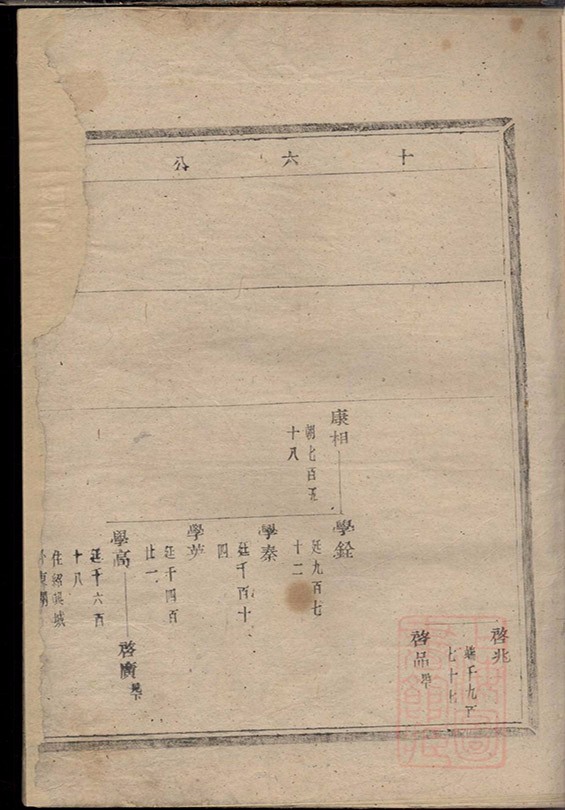 十六公
啓兆
七十七
啓品
康相
朝七百五
十八
學銓
廷九百七
十二
學秦
廷千百十
四
學芦
廷千四百
廿一
學高
廷千六百
十八
住紹興城
啓廣